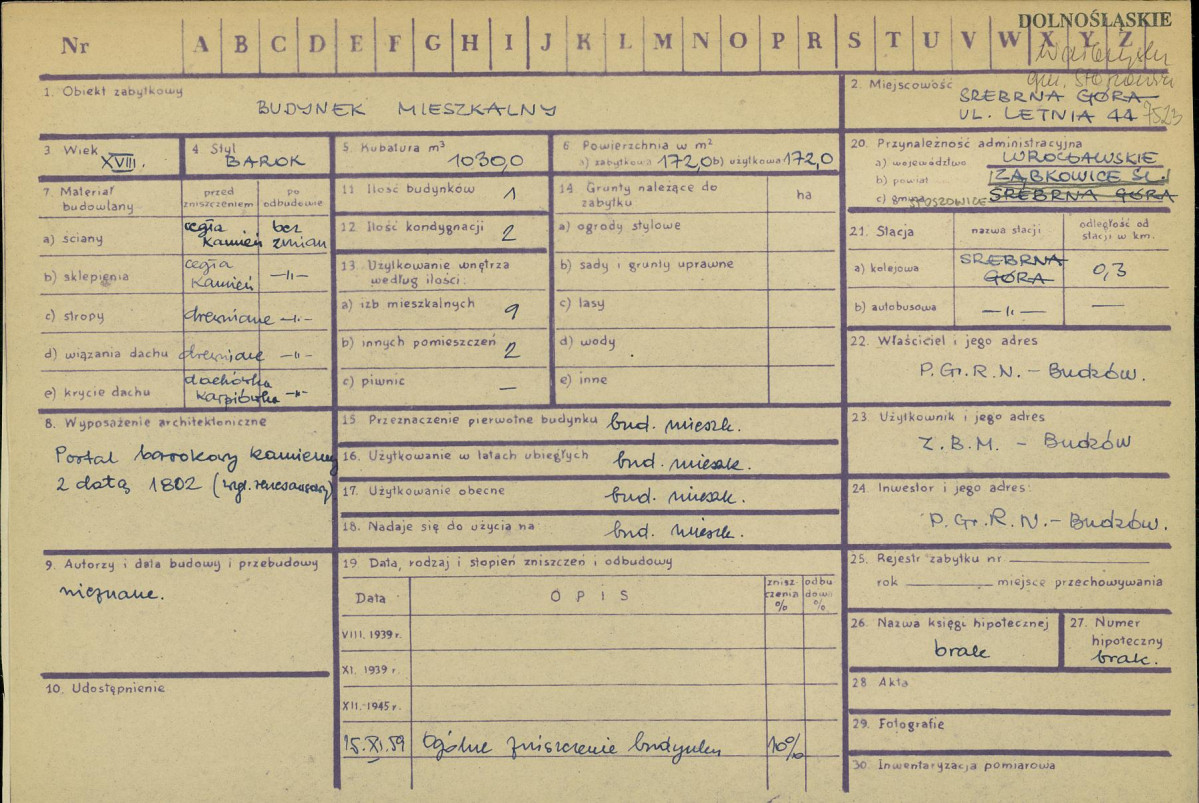 DOLNOŚLĄSKIE
Nr A B C D E F G H I J K L M N O P R S T U V W X Y Z
1. Obiekt zabytkowy
BUDYNEK MIESZKALNY
2. Miejscowość
SREBRNA GÓRA
UL. LETNIA 44
3 Wiek
XVIII.
4 Styl
BAROK
5. Kubatura m³
1030,0
6 Powierzchnia w m²
a) zabytkowa 172,0 b) użytkowa 172,0
20. Przynależność administracyjna
a) województwo WROCŁAWSKIE
b) powiat ZĄBKOWICE ŚL.
c) gmina STOSZOWICE SREBRNA GÓRA
7. Materiał budowlany
przed zniszczeniem
po odbudowie
a) ściany cegła kamień bez zmian
b) sklepienia cegła kamień —"—
c) stropy drewniane —"—
d) wiązania dachu drewniane —"—
e) krycie dachu dachówka karpiówka —"—
11 Ilość budynków
1
12. Ilość kondygnacji
2
13. Użytkowanie wnętrza według ilości:
a) izb mieszkalnych 9
b) innych pomieszczeń 2
c) piwnic —
14. Grunty należące do zabytku
ha
a) ogrody stylowe
b) sady i grunty uprawne
c) lasy
d) wody
e) inne
21. Stacja
nazwa stacji
odległość od stacji w km.
a) kolejowa SREBRNA GÓRA 0,3
b) autobusowa —"— —
22. Właściciel i jego adres
P.G.R.N. – Budzów.
8. Wyposażenie architektoniczne
Portal barokowy kamienny
z datą 1802 (wzgl. renesansowy)
15 Przeznaczenie pierwotne budynku bud. mieszk.
16. Użytkowanie w latach ubiegłych bud. mieszk.
17. Użytkowanie obecne bud. mieszk.
18. Nadaje się do użycia na bud. mieszk.
23. Użytkownik i jego adres
Z.B.M. – Budzów
24. Inwestor i jego adres:
P.G.R.N. – Budzów.
9. Autorzy i data budowy i przebudowy
nieznane.
10. Udostępnienie
19. Data, rodzaj i stopień zniszczeń i odbudowy
Data
OPIS
zniszczenia %
odbudowa %
VIII. 1939 r.
XI. 1939 r.
XII. 1945 r.
15.XI.59 Ogólne zniszczenie budynku 10%
25. Rejestr zabytku nr
rok miejsce przechowywania
26. Nazwa księgi hipotecznej
brak
27. Numer hipoteczny
brak.
28. Akta
29. Fotografie
30. Inwentaryzacja pomiarowa